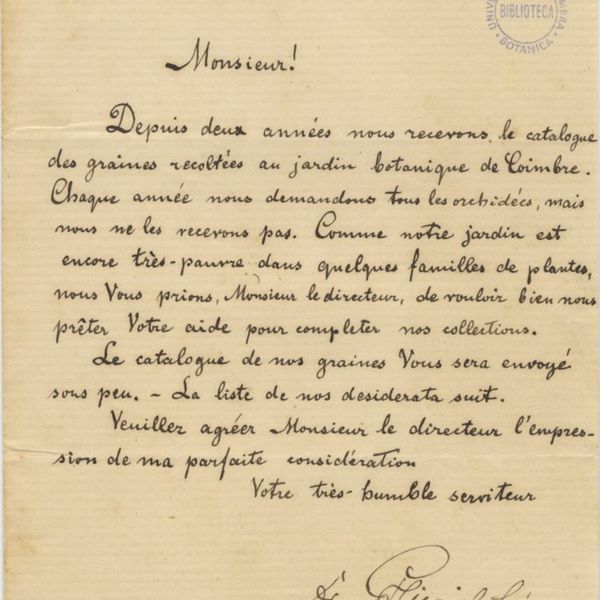 BIBLIOTECA
BOTANICA
Monsieur!
Depuis deux années nous recevons le catalogue
des graines recoltées au jardin botanique de Coimbre.
Chaque année nous demandons tous les orchidées, mais
nous ne les recevons pas. Comme notre jardin est
encore très-pauvre dans quelques familles de plantes,
nous Vous prions, Monsieur le directeur, de vouloir bien nous
prêter Votre aide pour completer nos collections.
Le catalogue de nos graines Vous sera envoyé
sous peu. – La liste de nos desiderata suit.
Veuiller agréer Monsieur le directeur l'empres-
sion de ma parfaite considération
Votre très-humble serviteur